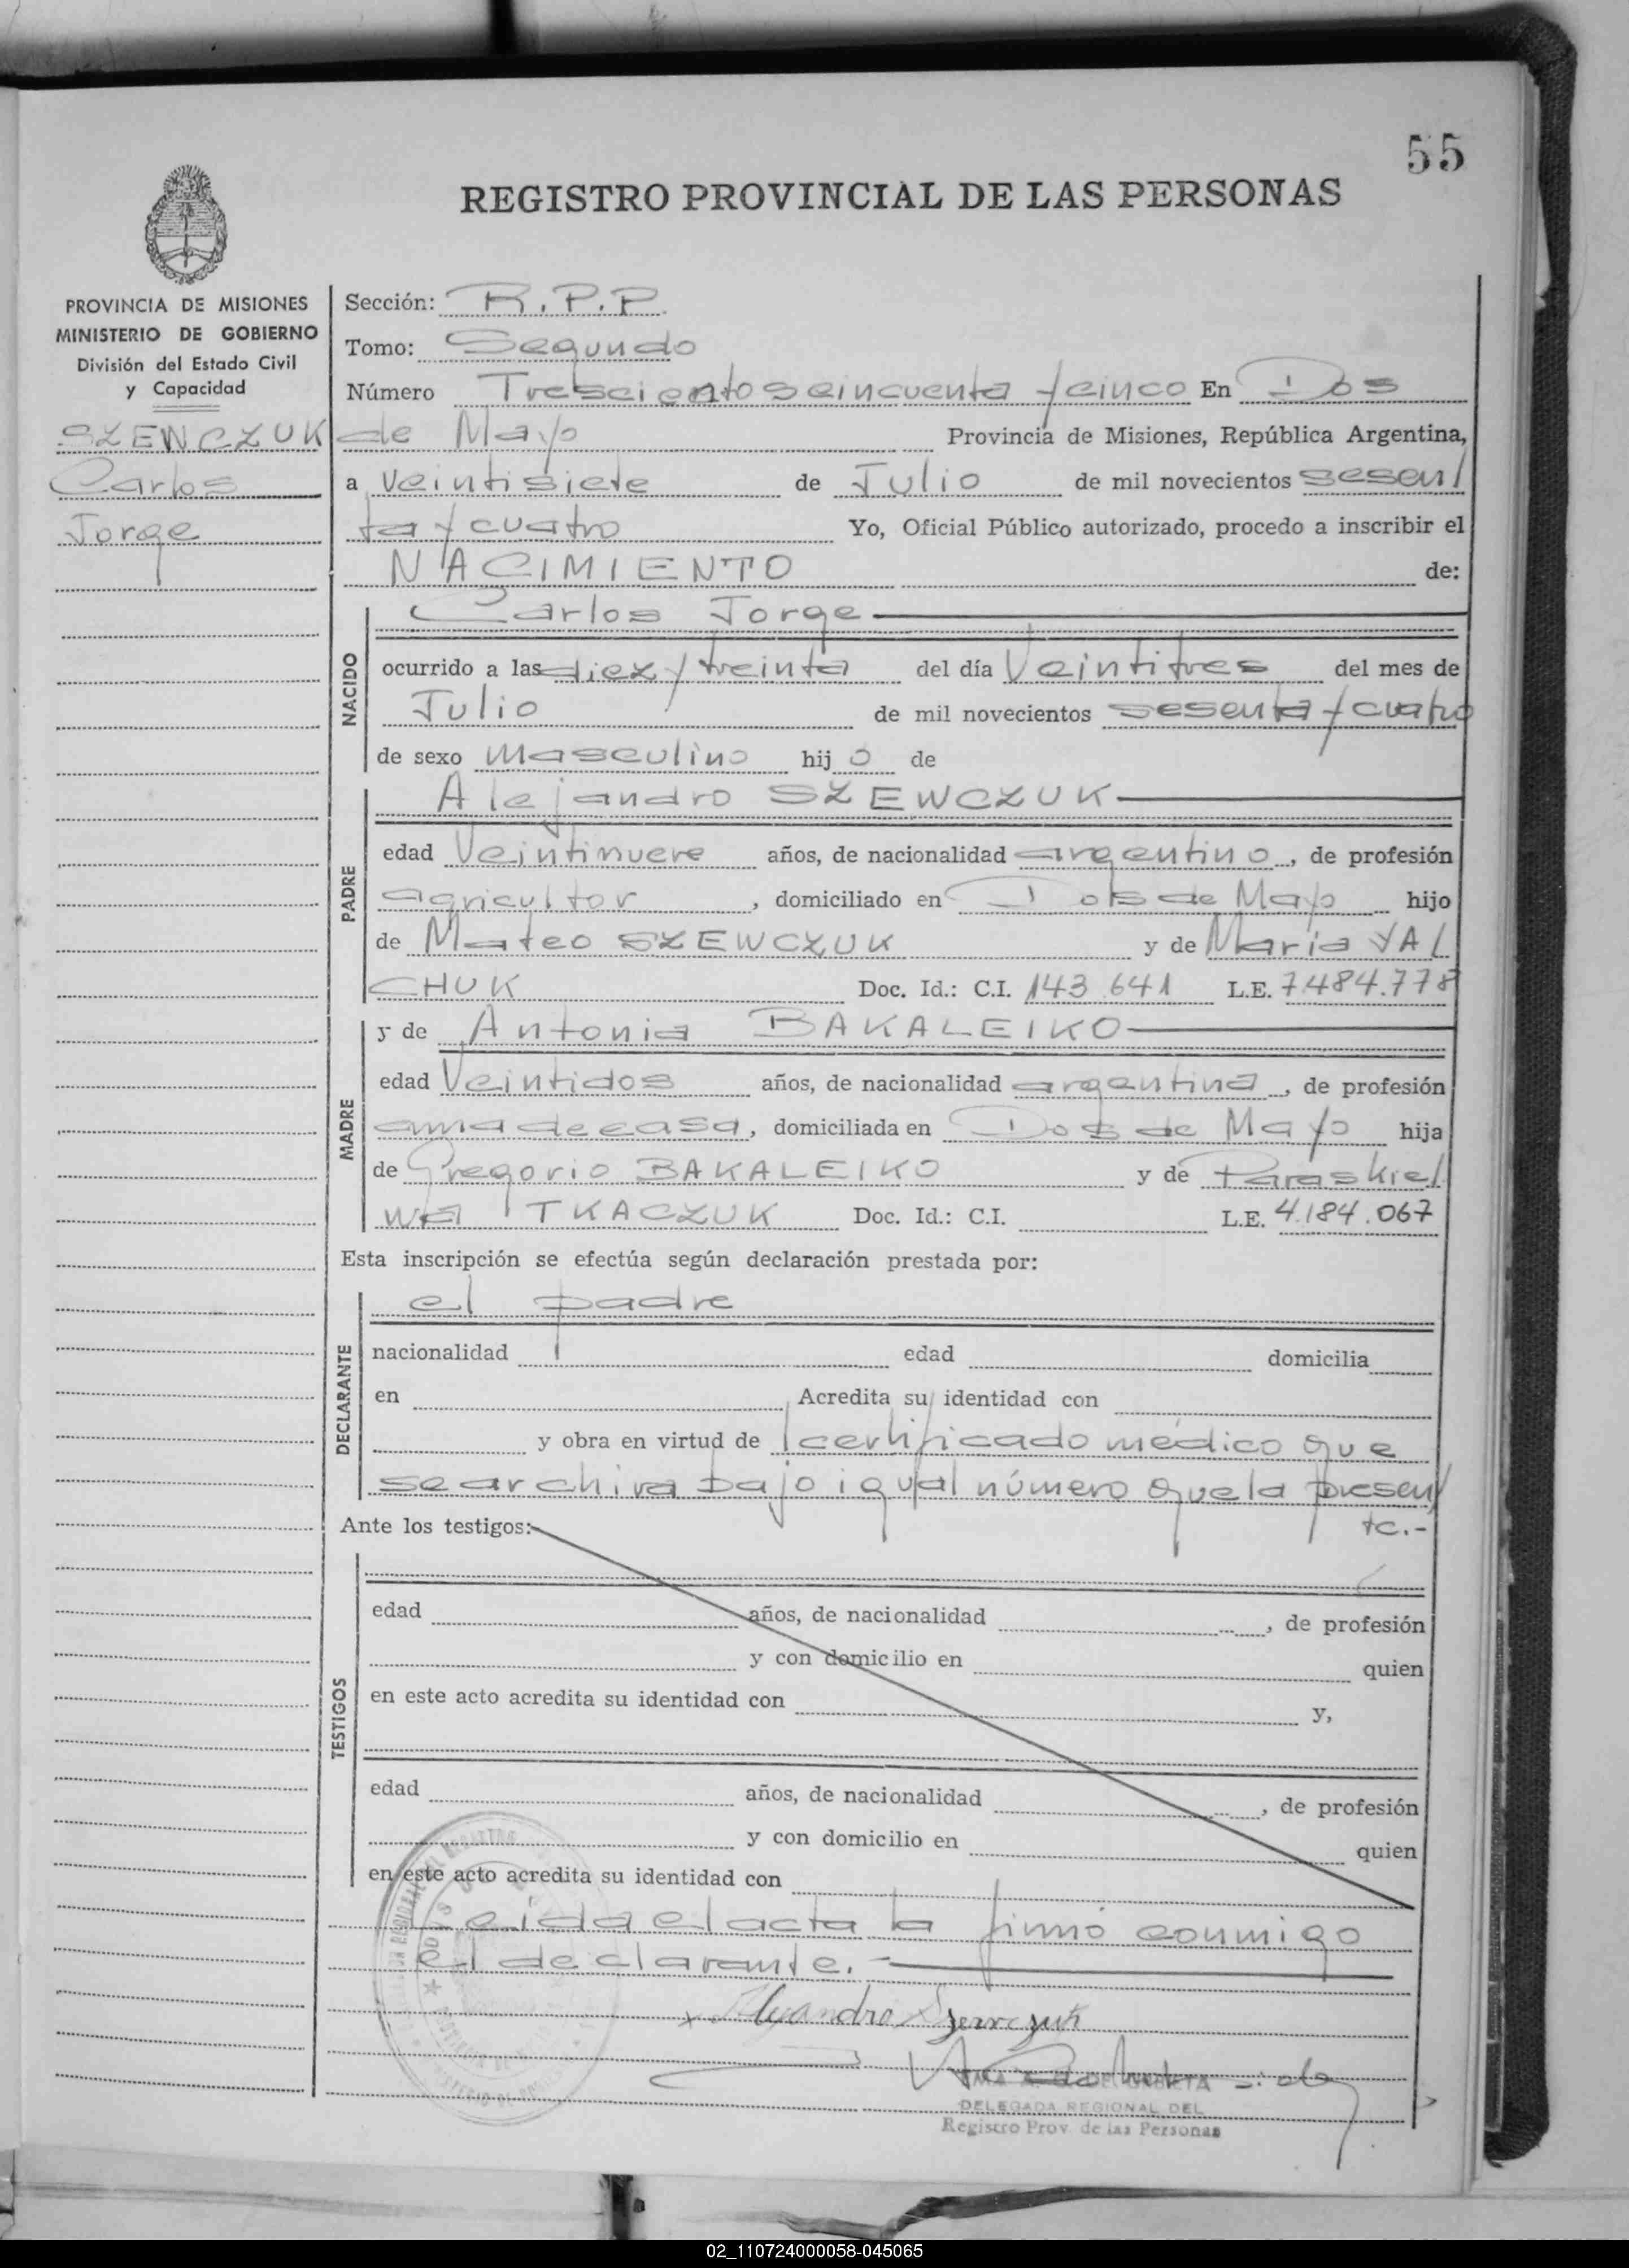 55
REGISTRO PROVINCIAL DE LAS PERSONAS
PROVINCIA DE MISIONES
MINISTERIO DE GOBIERNO
División del Estado Civil
y Capacidad
SZEWCZUK
Carlos
Jorge
Sección: R.P.P.
Tomo: Segundo
Número Trescientos cincuenta y cinco En Dos
de Mayo Provincia de Misiones, República Argentina,
a veintisiete de Julio de mil novecientos sesen/
ta y cuatro Yo, Oficial Público autorizado, procedo a inscribir el
NACIMIENTO de:
NACIDO
Carlos Jorge
ocurrido a las diez y treinta del día Veintitres del mes de
Julio de mil novecientos sesenta y cuatro
de sexo masculino hijo de
PADRE
Alejandro SZEWCZUK
edad Veintinueve años, de nacionalidad argentino, de profesión
agricultor, domiciliado en Dos de Mayo hijo
de Mateo SZEWCZUK y de Maria YAL
CHUK Doc. Id.: C.I. 143.641 L.E. 7.484.778
MADRE
y de Antonia BAKALEIKO
edad Veintidos años, de nacionalidad argentina, de profesión
ama de casa, domiciliada en Dos de Mayo hija
de Gregorio BAKALEIKO y de Paraskie/
wa TKACZUK Doc. Id.: C.I. L.E. 4.184.067
Esta inscripción se efectúa según declaración prestada por:
DECLARANTE
el padre
nacionalidad edad domicilia
en Acredita su identidad con
y obra en virtud de certificado médico que
se archiva bajo igual número que la presen/
te.-
Ante los testigos:
TESTIGOS
edad años, de nacionalidad , de profesión
y con domicilio en quien
en este acto acredita su identidad con y,
edad años, de nacionalidad , de profesión
y con domicilio en quien
en este acto acredita su identidad con
Leída el acta la firmó conmigo
el declarante.-
x Alejandro Szewczuk
DELEGADA REGIONAL DEL
Registro Prov. de las Personas
02_110724000058-045065